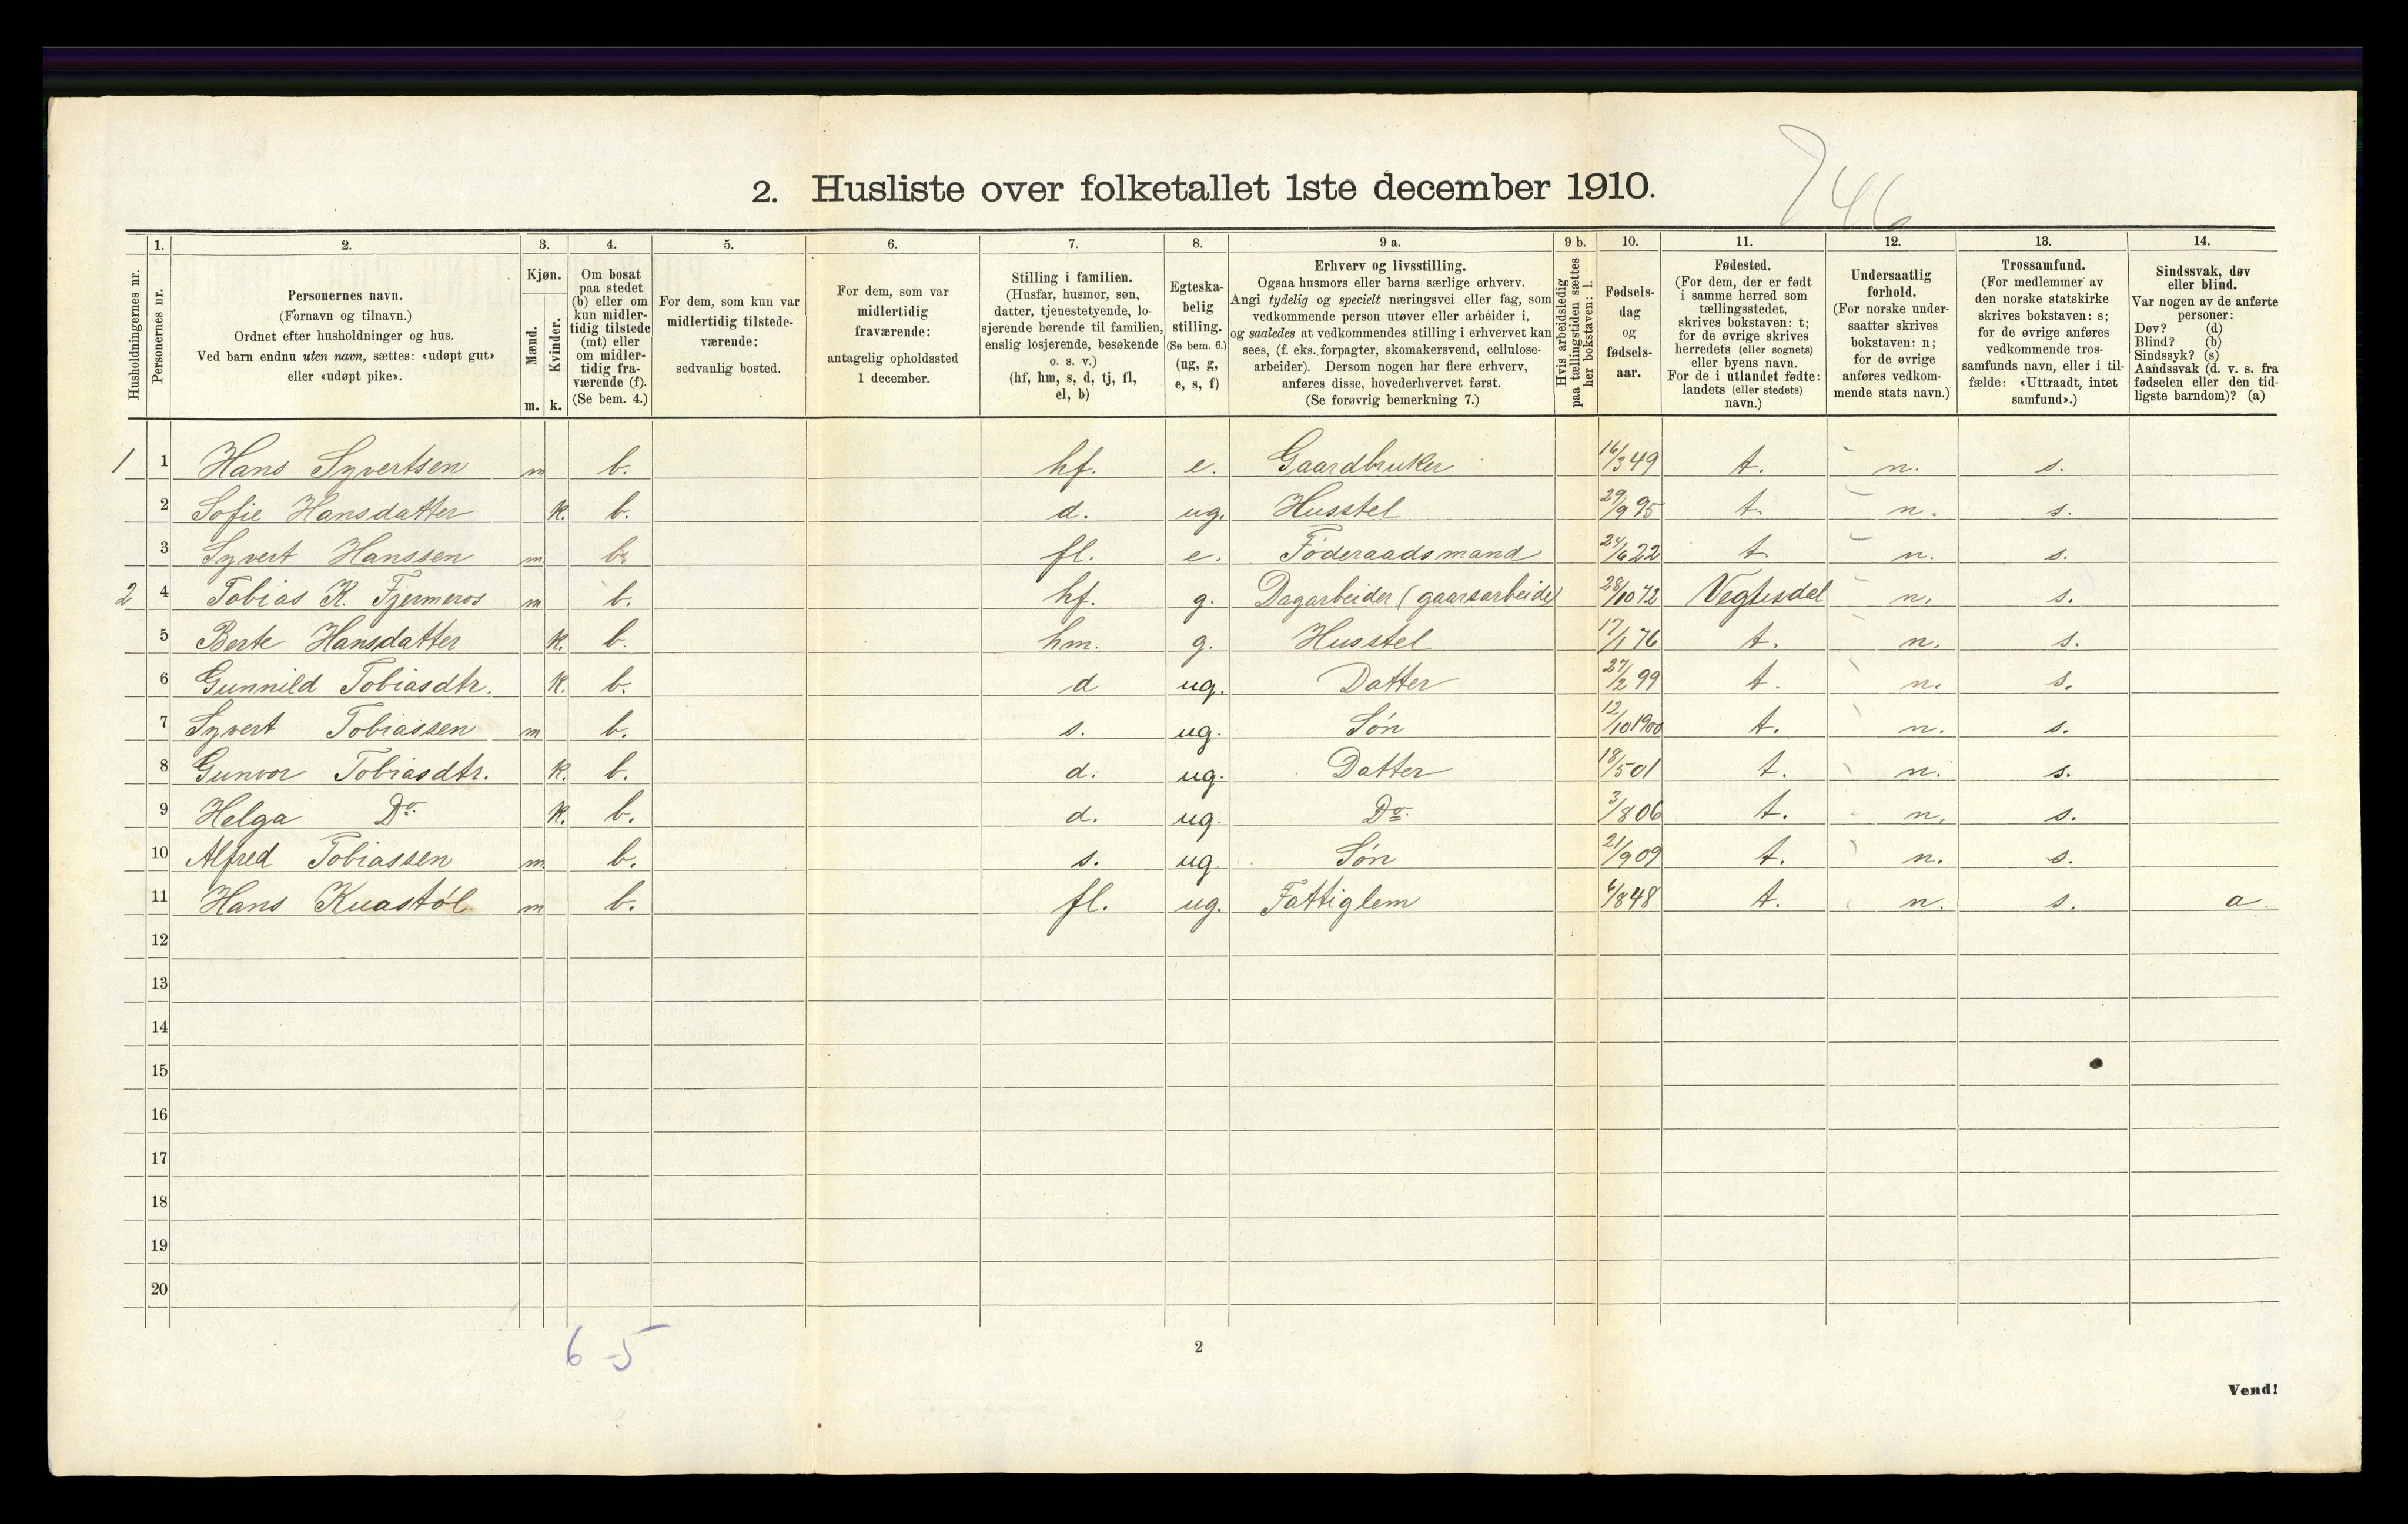 746
2. Husliste over folketallet 1ste december 1910.
Husholdningernes nr.
1. Personernes nr.
2. Personernes navn. (Fornavn og tilnavn.) Ordnet efter husholdninger og hus. Ved barn endnu uten navn, sættes: «udøpt gut» eller «udøpt pike».
3. Kjøn. Mænd. m. Kvinder. k.
4. Om bosat paa stedet (b) eller om kun midlertidig tilstede (mt) eller om midlertidig fraværende (f). (Se bem. 4.)
5. For dem, som kun var midlertidig tilstedeværende: sedvanlig bosted.
6. For dem, som var midlertidig fraværende: antagelig opholdssted 1 december.
7. Stilling i familien. (Husfar, husmor, søn, datter, tjenestetyende, losjerende hørende til familien, enslig losjerende, besøkende o. s. v.) (hf, hm, s, d, tj, fl, el, b)
8. Egteskabelig stilling. (Se bem. 6.) (ug, g, e, s, f)
9 a. Erhverv og livsstilling. Ogsaa husmors eller barns særlige erhverv. Angi tydelig og specielt næringsvei eller fag, som vedkommende person utøver eller arbeider i, og saaledes at vedkommendes stilling i erhvervet kan sees, (f. eks. forpagter, skomakersvend, cellulosearbeider). Dersom nogen har flere erhverv, anføres disse, hovederhvervet først. (Se forøvrig bemerkning 7.)
9 b. Hvis arbeidsledig paa tællingstiden sættes her bokstaven: l.
10. Fødselsdag og fødselsaar.
11. Fødested. (For dem, der er født i samme herred som tællingsstedet, skrives bokstaven: t; for de øvrige skrives herredets (eller sognets) eller byens navn. For de i utlandet fødte: landets (eller stedets) navn.)
12. Undersaatlig forhold. (For norske undersaatter skrives bokstaven: n; for de øvrige anføres vedkommende stats navn.)
13. Trossamfund. (For medlemmer av den norske statskirke skrives bokstaven: s; for de øvrige anføres vedkommende trossamfunds navn, eller i tilfælde: «Uttraadt, intet samfund».)
14. Sindssvak, døv eller blind. Var nogen av de anførte personer: Døv? (d) Blind? (b) Sindssyk? (s) Aandssvak (d. v. s. fra fødselen eller den tidligste barndom)? (a)
1 1 Hans Syvertsen m b. hf. e. Gaardbruker 16/3 49 t. n. s.
2 Sofie Hansdatter k. b. d. ug. Husstel 29/9 95 t. n. s.
3 Syvert Hanssen m b. fl. e. Føderaadsmand 24/6 22 t n. s.
2 4 Tobias K. Fjermeros m b. hf. g. Dagarbeider (gaarsarbeide) 28/10 72 Vegusdal n. s.
5 Berte Hansdatter k. b. hm. g. Husstel 17/1 76 t. n. s.
6 Gunnild Tobiasdtr. k. b. d ug. Datter 27/2 99 t. n. s.
7 Syvert Tobiassen m b. s. ug. Søn 12/10 1900 t. n. s.
8 Gunvor Tobiasdtr. k. b. d. ug. Datter 18/5 01 t. n. s.
9 Helga Do. k. b. d. ug. Do. 3/8 06 t. n. s.
10 Alfred Tobiassen m b. s. ug. Søn 21/9 09 t. n. s.
11 Hans Kuastøl m b. fl. ug. Fattiglem 6/8 48 t. n. s. a.
12
13
14
15
16
17
18
19
20
6 5
2
Vend!